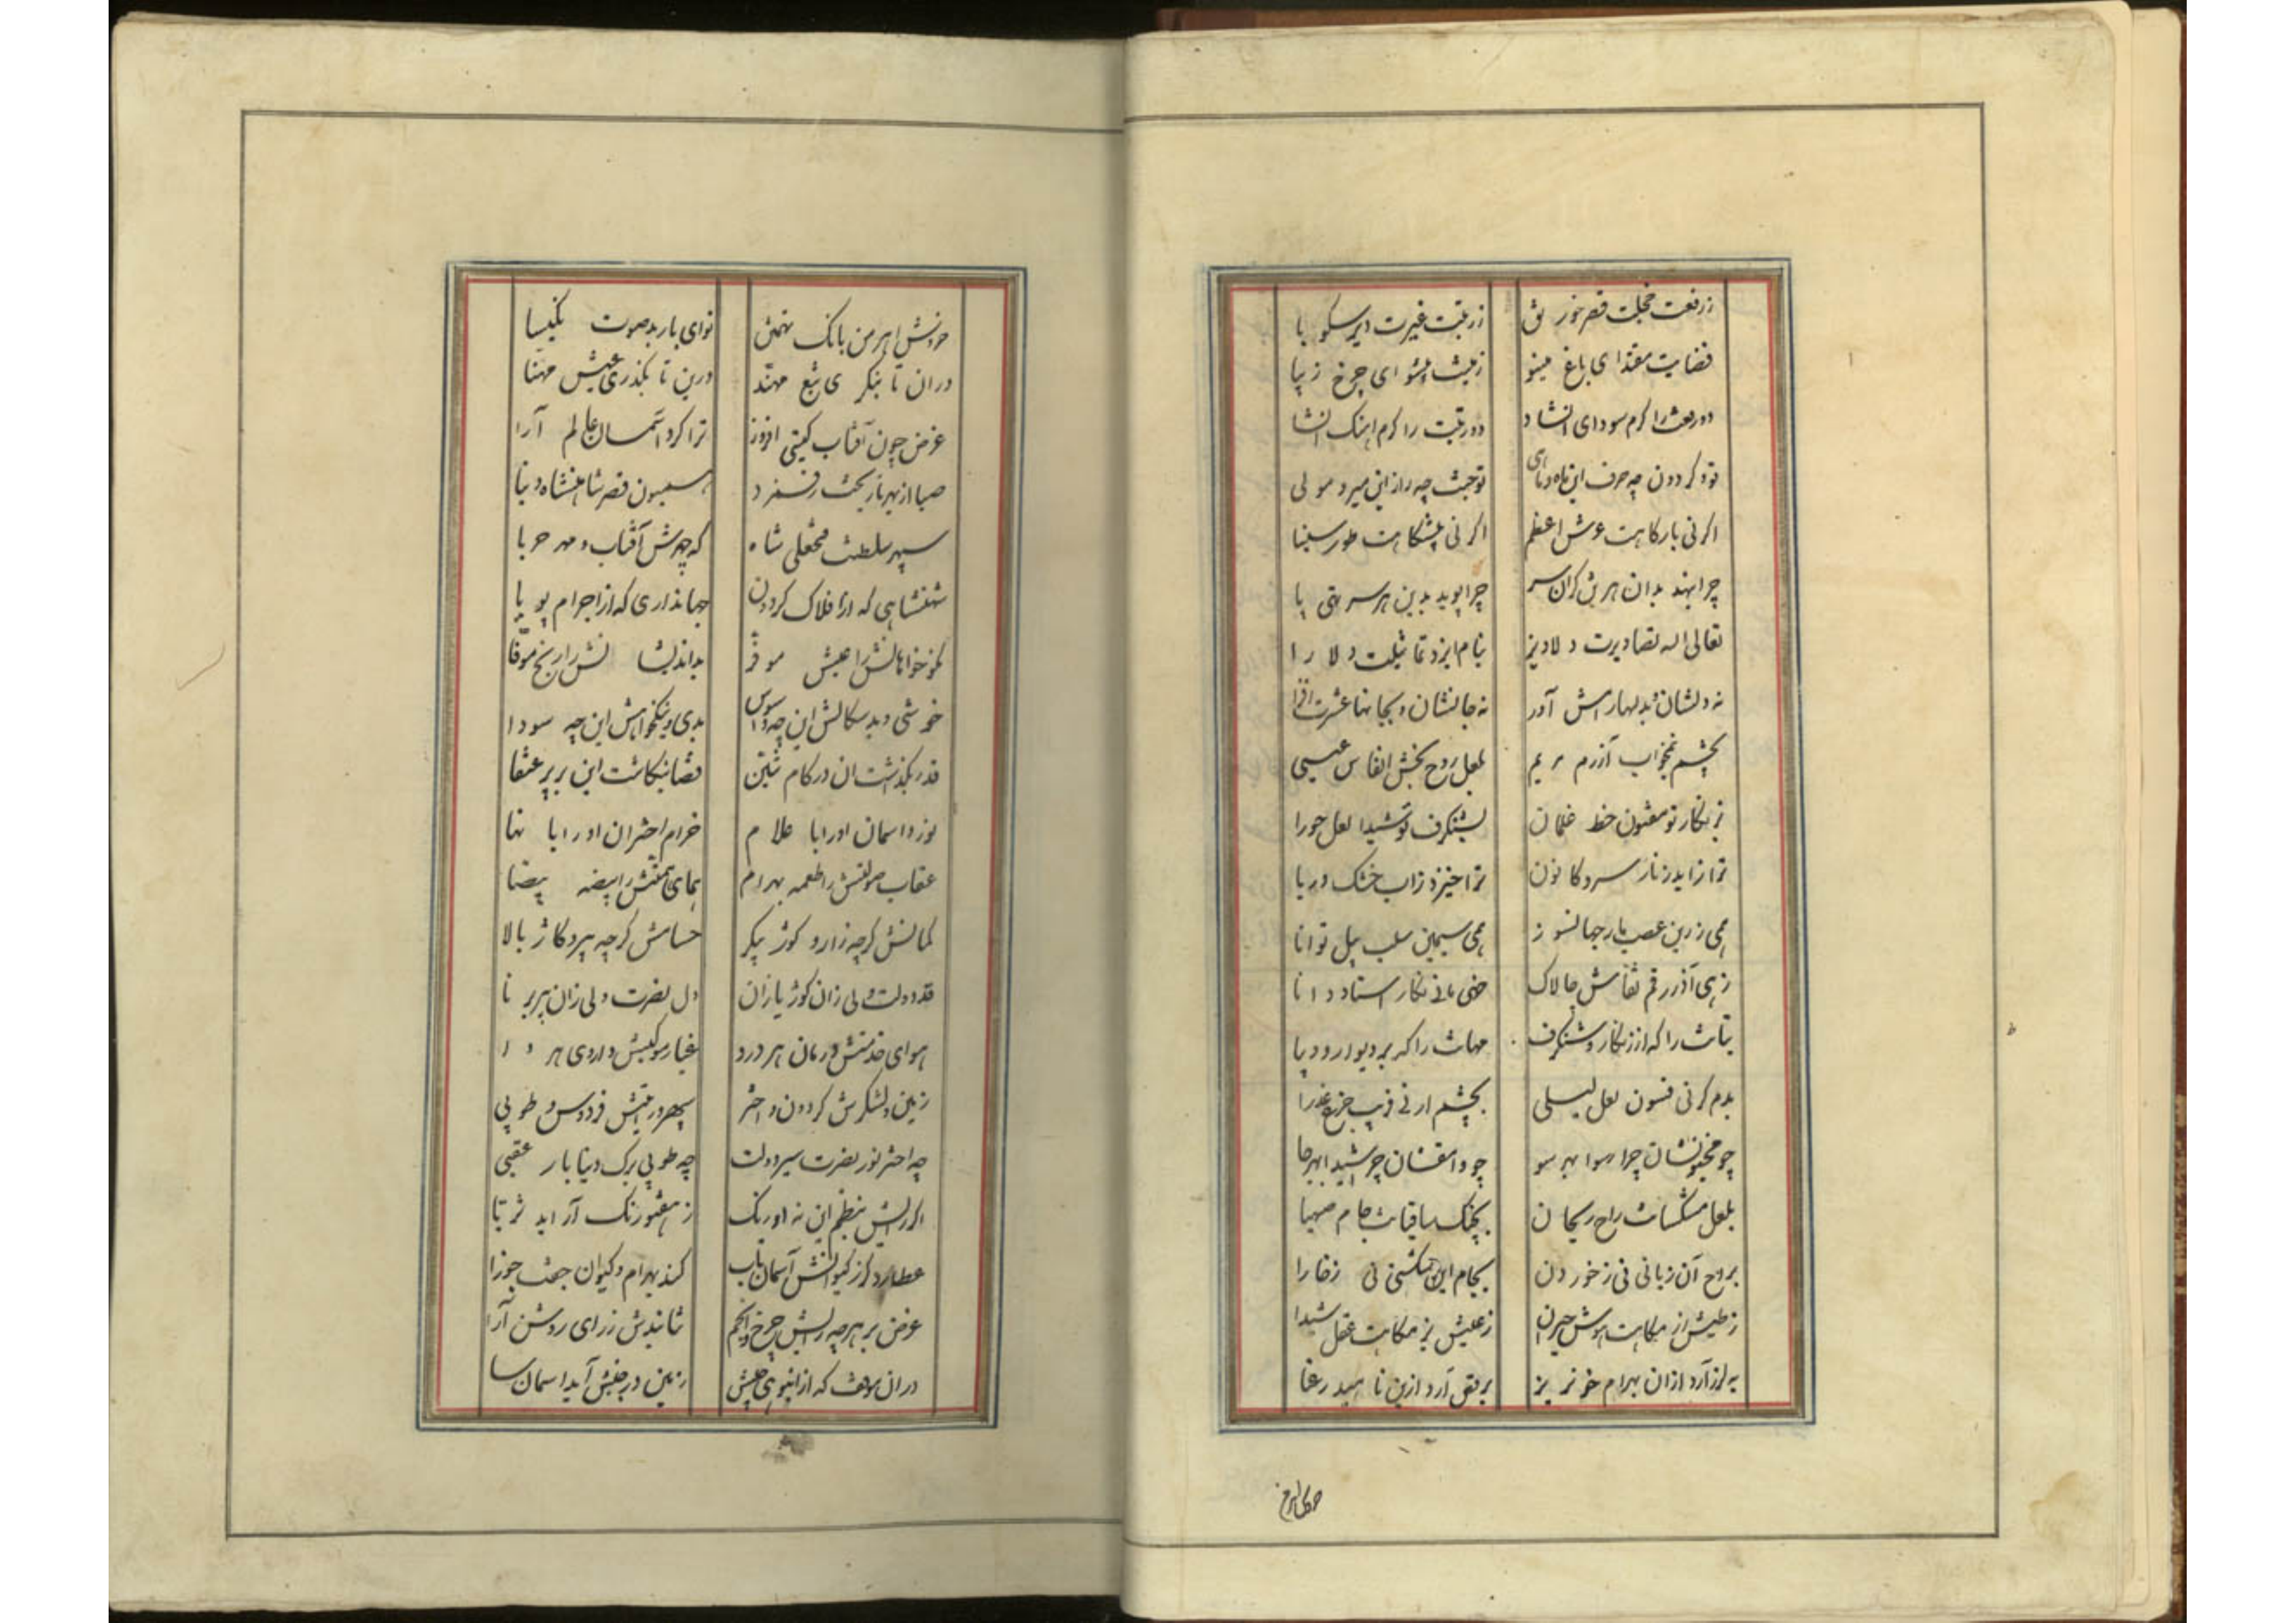 ز رفعت خجلت قصر خورنق ز زینت غیرت ایر سکوبا
فضایت مقتدای باغ مینو زمینت پیشوای چرخ زیبا
دو رفعت را کرم سودای انشاد دو رتبت را کرم اهنک انشا
تو و کردون چه حرف این ماه و نای تو جنت چه راز این میر و مولی
اکر نی بارکاهت عرش اعظم اکر نی پیشکاهت طور سینا
چرا نهد بدان هر تن کران سر چرا پوید بدین هر سر تنی پا
تعالی اله تصاویرت دلاویز بنام ایزد تماثیلت دلارا
نه دلشان و بدلها رامش آور نه جانشان و بجانها عشرت افزا
بچشم نمخواب آزرم مریم بلعل روح بخش انفاس عیسی
ز زنکار تو مفتون خط غلمان بشنکرف تو شیدا لعل حورا
ترا زاید ز نار سرد کانون ترا خیزد ز آب خشک دریا
همی زرین عصب مار جهانسوز همی سیمین سلب پیل توانا
زهی آذر رقم نقاش چالاک خهی مانی نکار استاد دانا
بتانت را که از زنکار و شنکرف مهانت را که بر دیوار و دیبا
بدم کر نی فسون لعل لیلی بچشم ار نی فریب جزع عذرا
چو مجنونشان چرا هوا بهر سو چو وامقشان چرا شیدا بهر جا
بلعل میکسارانت راح ریحان بچنک ساقیانت جام صهبا
بروح آن زبانی نی ز خوردن بجام این شکستی نی ز خارا
ز طیش از مکانت هوش حیران ز عیش بزمکاهت عقل شیدا
به لرز آرد از آن بهرام خونریز برقص آرد ازین ناهید رعنا
خروش اهرمن بانک تهمتن نوای باربد صوت نکیسا
در آن تا بنکری تیغ مهند درین تا بکذری عیش مهنا
غرض چون آفتاب کیتی افروز ترا کرد آسمان عالم آرا
صبا از بهر تاریخت رقم زد همیون قصر شاهنشاه دنیا
سپهر سلطنت فتحعلی شاه که چهرش آفتاب و مهر حربا
شهنشاهی که از افلاک کردون جهانداری که از اجرام پویا
نکوخواهانش را عیش موفر بداندیشانش را رنج موفا
خوشی و بدسکالش این چه وسواس بدی و نیکخواهش این چه سودا
قدر بکذشت آن در کام تنین قضا بنکاشت این بر پر عنقا
بوزد آسمان او را با علام خرام اختران او را با نها
عقاب صولتش را طعمه بهرام همای همتش را بیضه بیضا
کمانش کرچه زار و کوژ پیکر حسامش کرچه پیر و کاژ بالا
قد دولت ولی زان کوژ یازان دل نصرت ولی زان پیر برنا
هوای خدمتش درمان هر درد غبار موکبش داروی هر دا
زمین و لشکرش کردون و اختر سپهر و رایتش فردوس و طوبی
چه اختر نور نصرت سیر دولت چه طوبی برک دنیا بار عقبی
اکر رایش بنظم این نه اورنک ز هفتورنک آراید ثریا
عطارد کر ز کیوانش آسمان تاب کند بهرام و کیوان جفت جوزا
غرض بر هرچه رایش چرخ و انجم نتابندش ز رای روشن آرا
در آن موقف که از انبوهی جیش زمین در جنبش آید آسمان سا